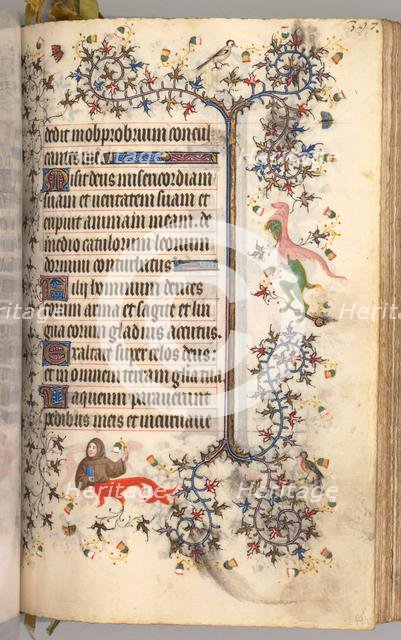 397
dedit in obprobrium concul
cantes me
Misit deus misericordiam
suam et veritatem suam et
eripuit animam meam de
medio catulorum leonum
dormivi conturbatus
Filii hominum dentes
eorum arma et sagitte et lin
gua eorum gladius acutus.
Exaltare super celos deus:
et in omnem terram gloria tua.
Laqueum paraverunt
pedibus meis et incurvave